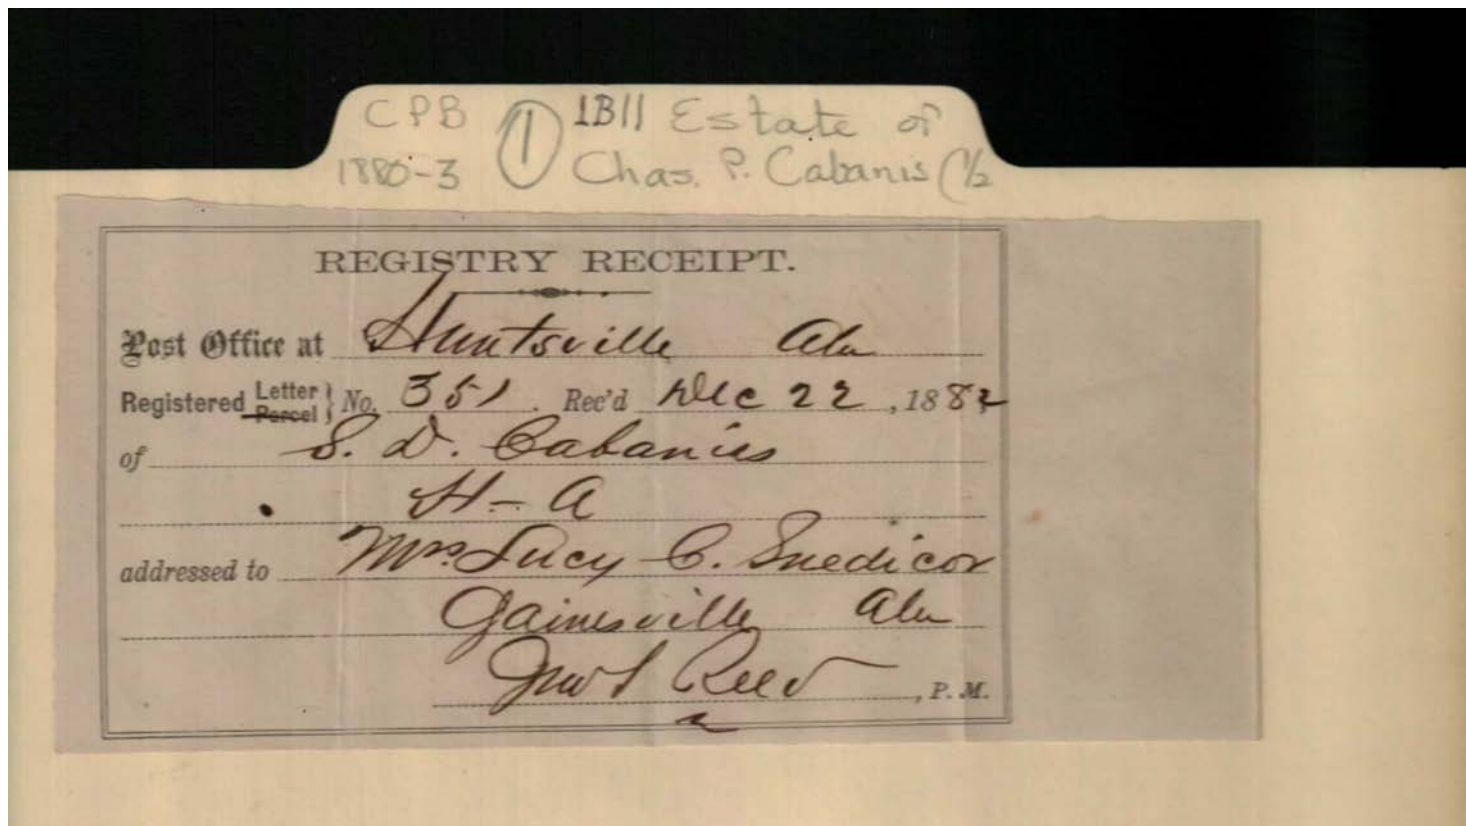 CPB ① 1B11 Estate of
1880-3 Chas. P. Cabanis (1/2
REGISTRY RECEIPT.
Post Office at Huntsville Ala
Registered Letter Parcel } No. 351. Rec'd Dec 22, 1882
of S. D. Cabaniss
H - A
addressed to Mrs. Lucy C. Snedicor
Gainesville Ala
Reed, P. M.